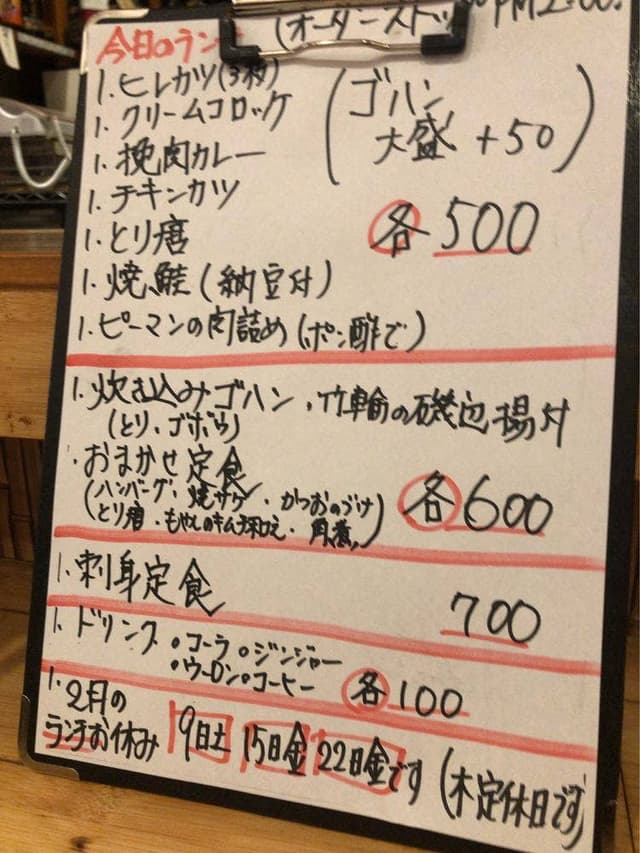 今日のラン
(オーダーストッ PM2:00.
1.ヒレカツ(3枚)
1.クリームコロッケ
1.挽肉カレー
1.チキンカツ
1.とり唐
1.焼鮭(納豆付)
1.ピーマンの肉詰め(ポン酢で)
(ゴハン
大盛 +50)
各500
1.炊き込みゴハン・竹輪の磯辺揚付
(とり、ゴボウ)
・おまかせ定食
(ハンバーグ・焼サケ・かつおのづけ
とり唐・もやしのキムチ和え・角煮)
各600
1.刺身定食 700
1.ドリンク •コーラ •ジンジャー
•ウーロン •コーヒー 各100
1.2月の
ランチお休み 9日土 15日金 22日金です (木定休日です)